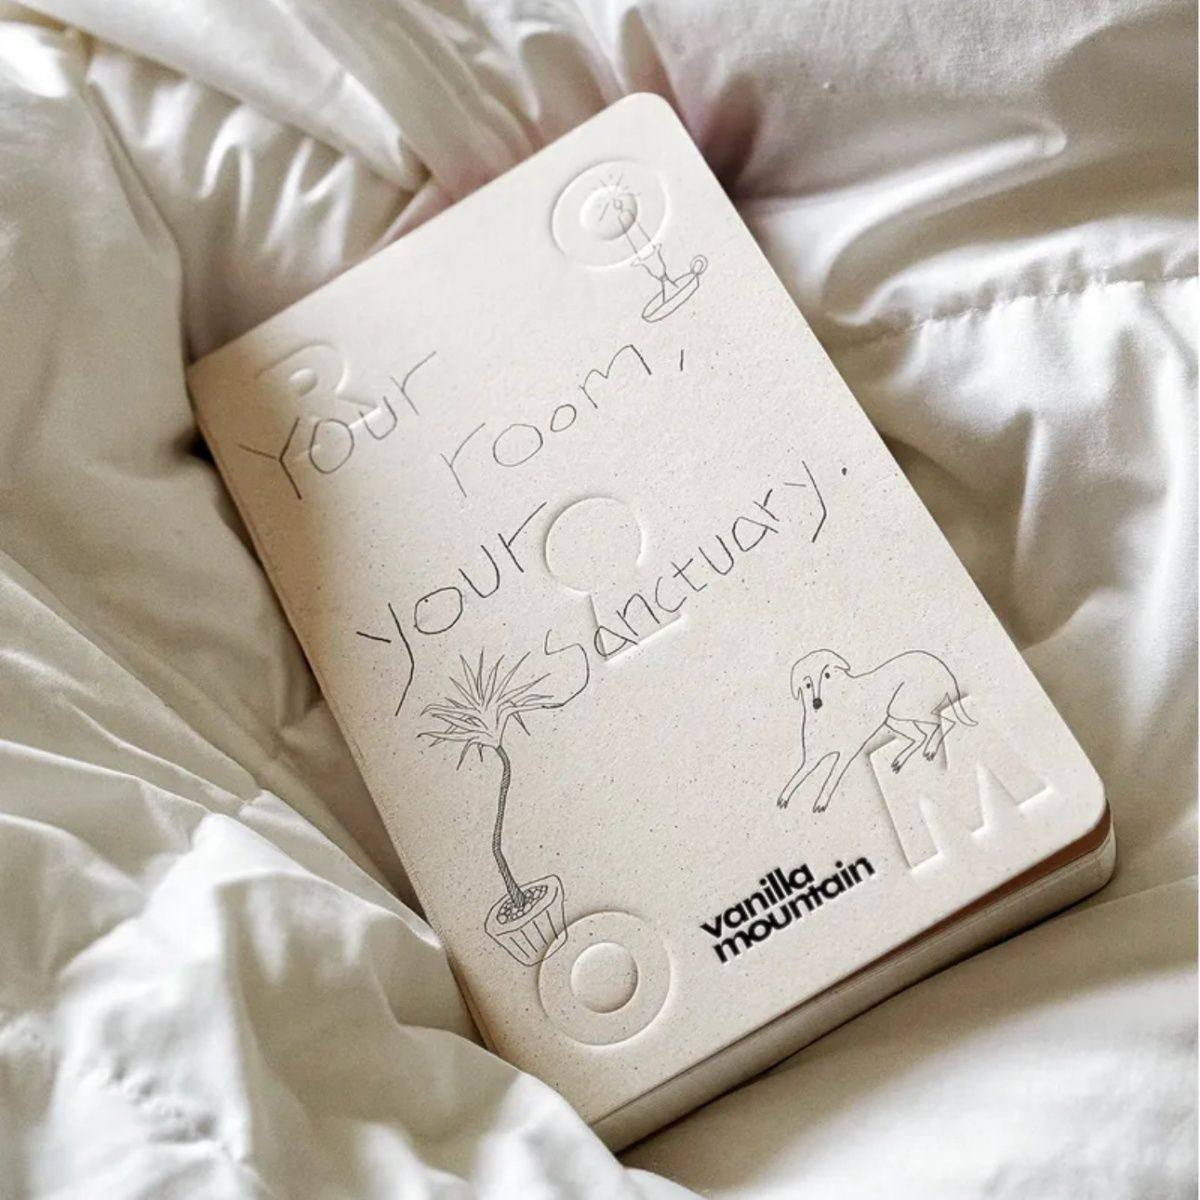 R
O
Your room,
your
Sanctuary.
M
O
vanilla
mountain